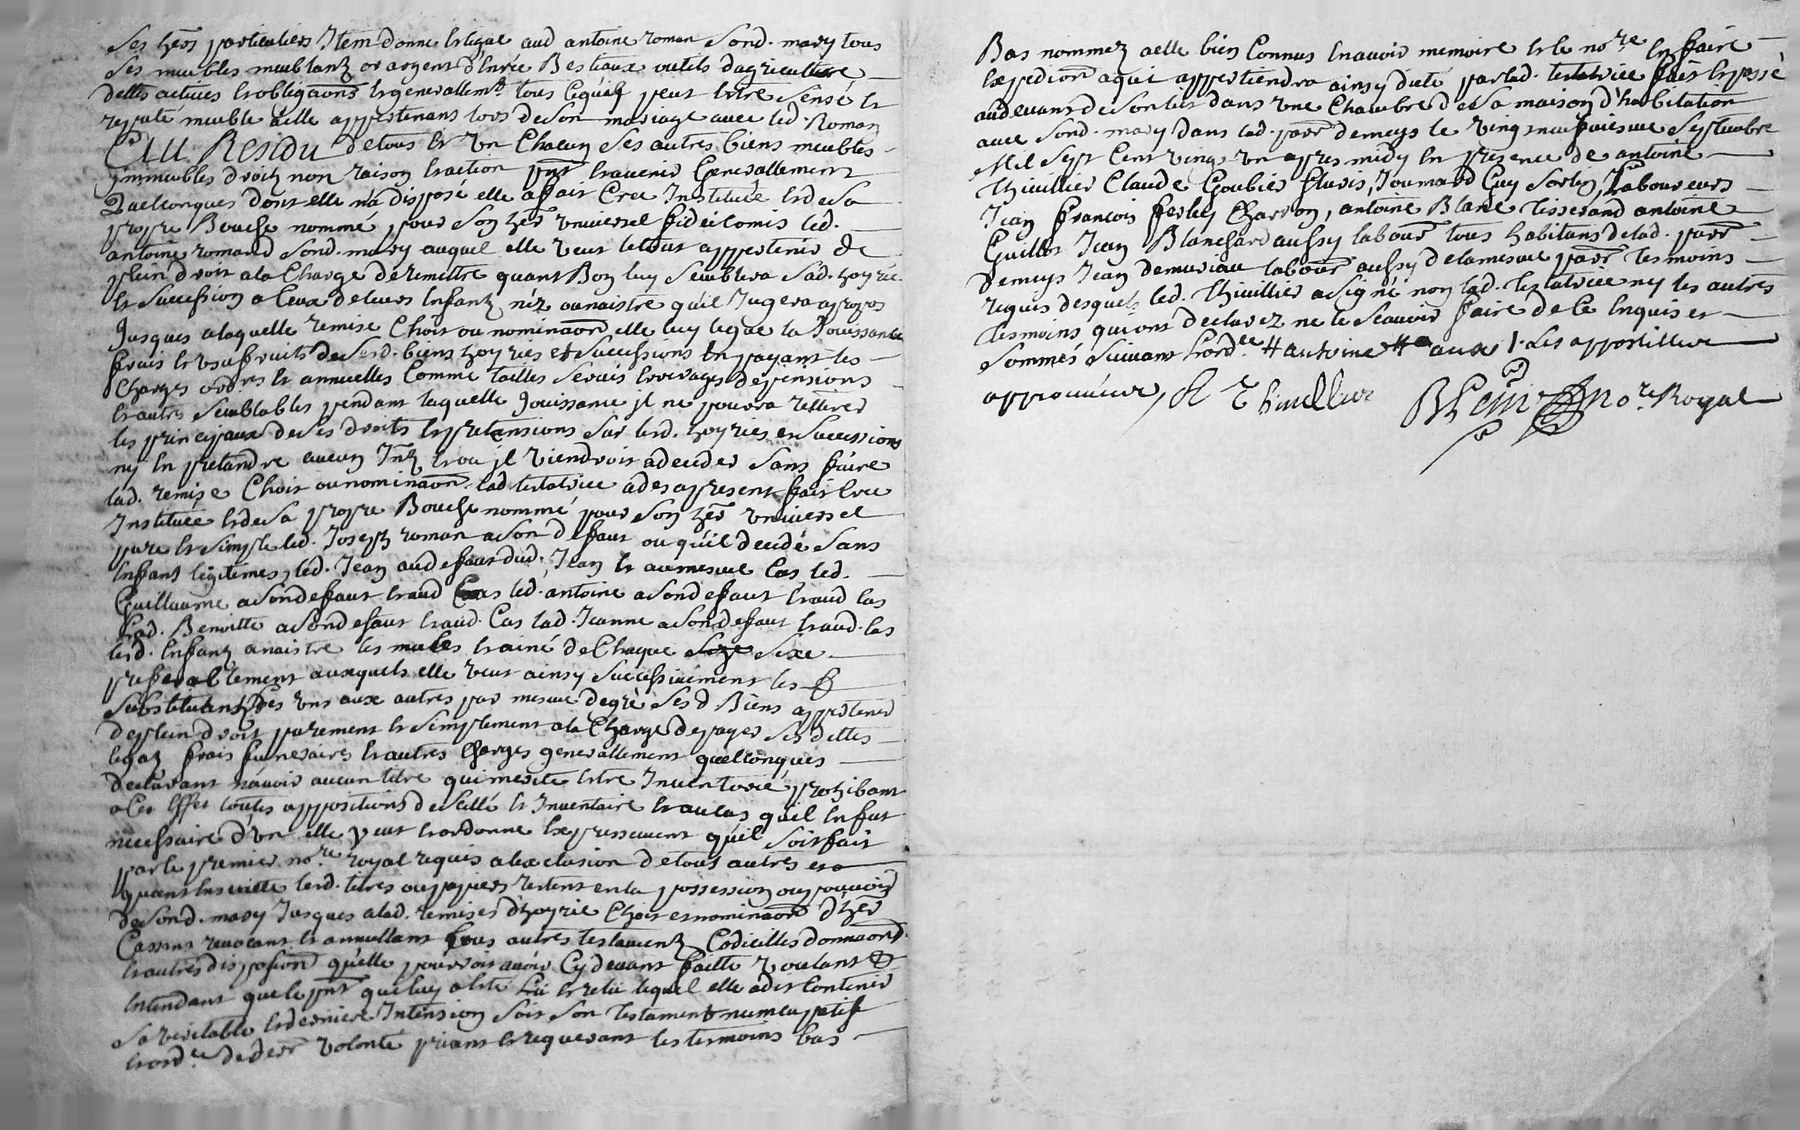 ses hers particuliers Item donne et legue aud antoine roman sond. mary tous
ses meubles meublantz or argent danrée Bestiaux outils dagriculture
dettes actives et obligaons et generallemt tous ce qui peut estre sensé et
reputé meuble a elle appartenans lors de son mariage avec led. Roman
Et au Residu de tous et un chacun ses autres biens meubles
jmmeubles droitz nom raison et action pnt et avenir generallement
Quelconques dont elle n'a disposé elle a fait cree Institué et de sa
propre Bouche nommé pour son her universel fideicomis led.
antoine romand sond. mary auquel elle veut le tout appertenir de
plein droit a la charge de remettre quant Bon luy semblera sad. hoyrie
et sucession a ceux de leurs enfantz néz ou naistre quil Jugera apropos
Jusques a laquelle remise choix ou nominaon elle luy legue la Jouissance
fruis et usufruits de sesd. biens hoyries et sucessions en payant les
charges ordres et annuelles comme tailles servis de pensions
et autres semblables pendant laquelle Jouissance jl ne pourra retirer
les principaux de ses droits et pretensions sur lesd. hoyries et sucessions
ny en pretandre aucun Intz et ou jl viendroit a deceder sans faire
lad. remise choix ou nominaon lad. testatrice a des apresent fait cree
Instituée et de sa propre Bouche nommé pour son her universel
pure et simple led. Joseph roman a son deffaut ou quil decede sans
enffant legitimes, led. Jean aud. deffaut dud. Jean et au mesme cas led.
Guillaume a son deffaut et aud cas led. antoine a son deffaut et aud cas
lad. Benoitte a son defaut et aud. cas lad. Jeanne a son deffaut et aud. cas
lesd. enffantz a naistre les males et ainé de chaque sexe
prefferablement auxquels elle veut ainsy successivement les
substituant les uns aux autres par mesme degré sesd Biens appertenir
de plein droit purement et simplement a la charge de payer ses dettes
legaz frais funeraires et autres charges generallement quelconques
declarant n'avoir aucun titre qui merite estre Inventorié prohibant
a cet effet toutes appositions de sellé et Inventaire et au cas quil en fut
necessaire d'un elle veut et ordonne expressement quil soit fait
par le premier nore royal requis a lexclusion de tous autres et
quant lesd. titres ou papiers restent en la possession ou pouvoir
de sond. mary Jusques a lad. remises d'hoyrie choix et nominaon d'her
Cassant revocant et annullant tous autres testamentz Codicilles donnaons
et autres disposions quelle pourroit avoir cy devant faitte voulant &
entendant que le pnt que luy a esté lu et relu lequel elle a dit contenir
sa veritable et derniere Intension soit son testament nuncupatif
et ord.re de derr volonté priant et requerant les tesmoins bas
Bas nommez a elle bien connus en avoir memoire et le nore en faire
expedion a qui appertiendra ainsy dicté par lad. testatrice fait et passé
au devant de son lit dans une chambre de sa maison d'habitation
avec sond. mary dans lad. parr demeys le vingt neufvieme septembre
Mil sept cent vingt un apres midy en presence de antoine
Thiuillier Claude Goubier Joumard Guy Laboureurs
Jean francois charron, antoine Blanc tisserand antoine
Guillot Jean Blanchard aussy labour tous habitans de lad. parr
demeys Jean labour aussy de la mesme parr tesmoins
requis desquels led. Thiuillier a signé non lad. testatrice ny les autres
tesmoins qui ont declarez ne le scauoir faire de ce enquis et
sommés suivant l'ordce # antoine # aux 1. Les appostilles
approuvéez, A Thiuillier nore Royal